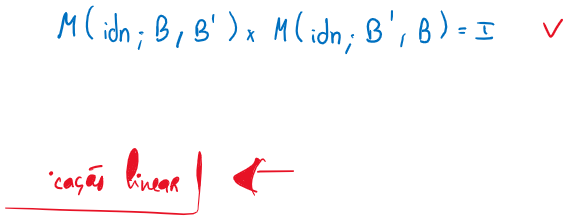 M(idn; B, B') x M(idn; B', B) = I V
icação linear